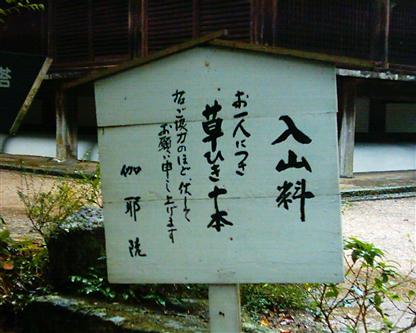 入山料
お一人につき
草ひき十本
なにご後力のほど、伏して
お願い申し上げます
伽耶院
塔